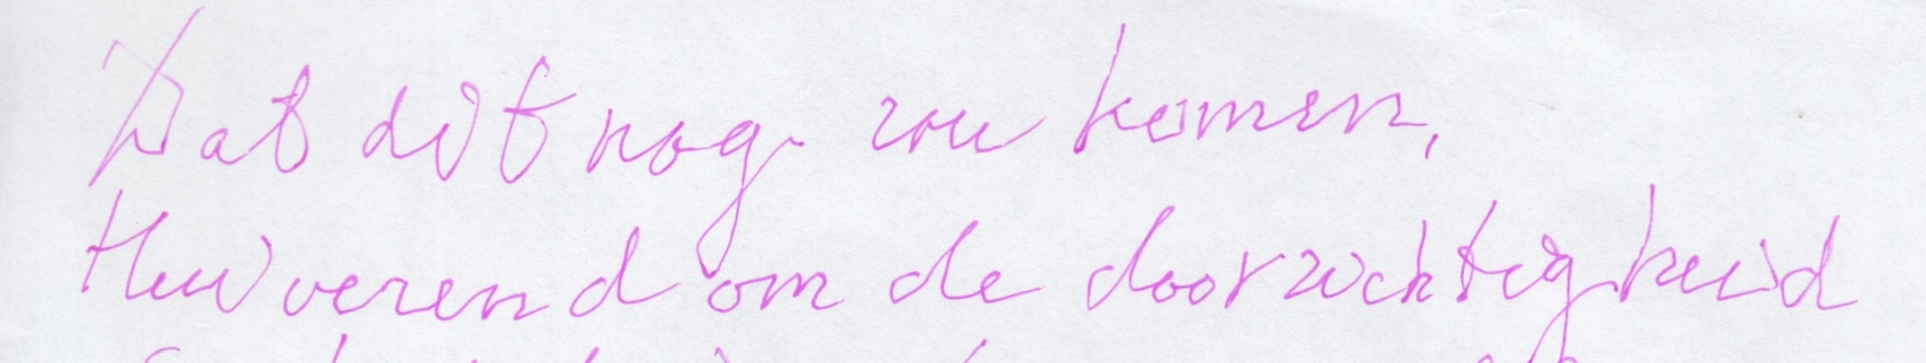 Dat dit nog zou komen,
Huiverend om de doorzichtigheid